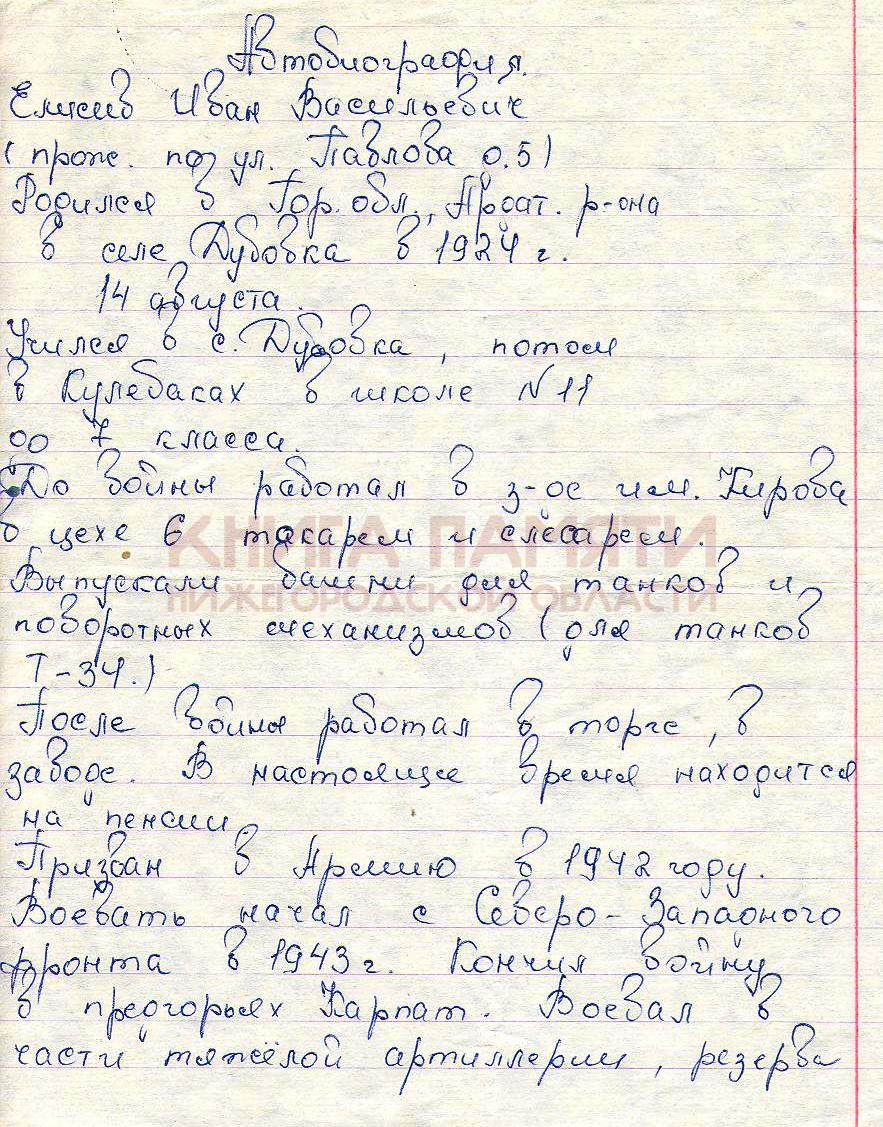 Автобиография.
Елисив Иван Васильевич
(прож. по ул. Павлова д.5)
Родился в Гор. обл., Ардат. р-она
в селе Дубовка в 1924 г.
14 августа.
Учился в с. Дубовка, потом
в Кулебаках в школе №11
до 7 класса.
До войны работал в з-де им. Кирова
в цехе 6 такарем и слесарем.
КНИГА ПАМЯТИ
Выпускали башни для танков и
НИЖЕГОРОДСКОЙ ОБЛАСТИ
поворотных механизмов (для танков
Т-34.)
После войны работал в торге, в
заводе. В настоящее время находится
на пенсии
Призван в Армию в 1942 году.
Воевать начал с Северо-Западного
фронта в 1943 г. Кончил войну
в предгорьях Карпат. Воевал в
части тяжёлой артиллерии, резерва